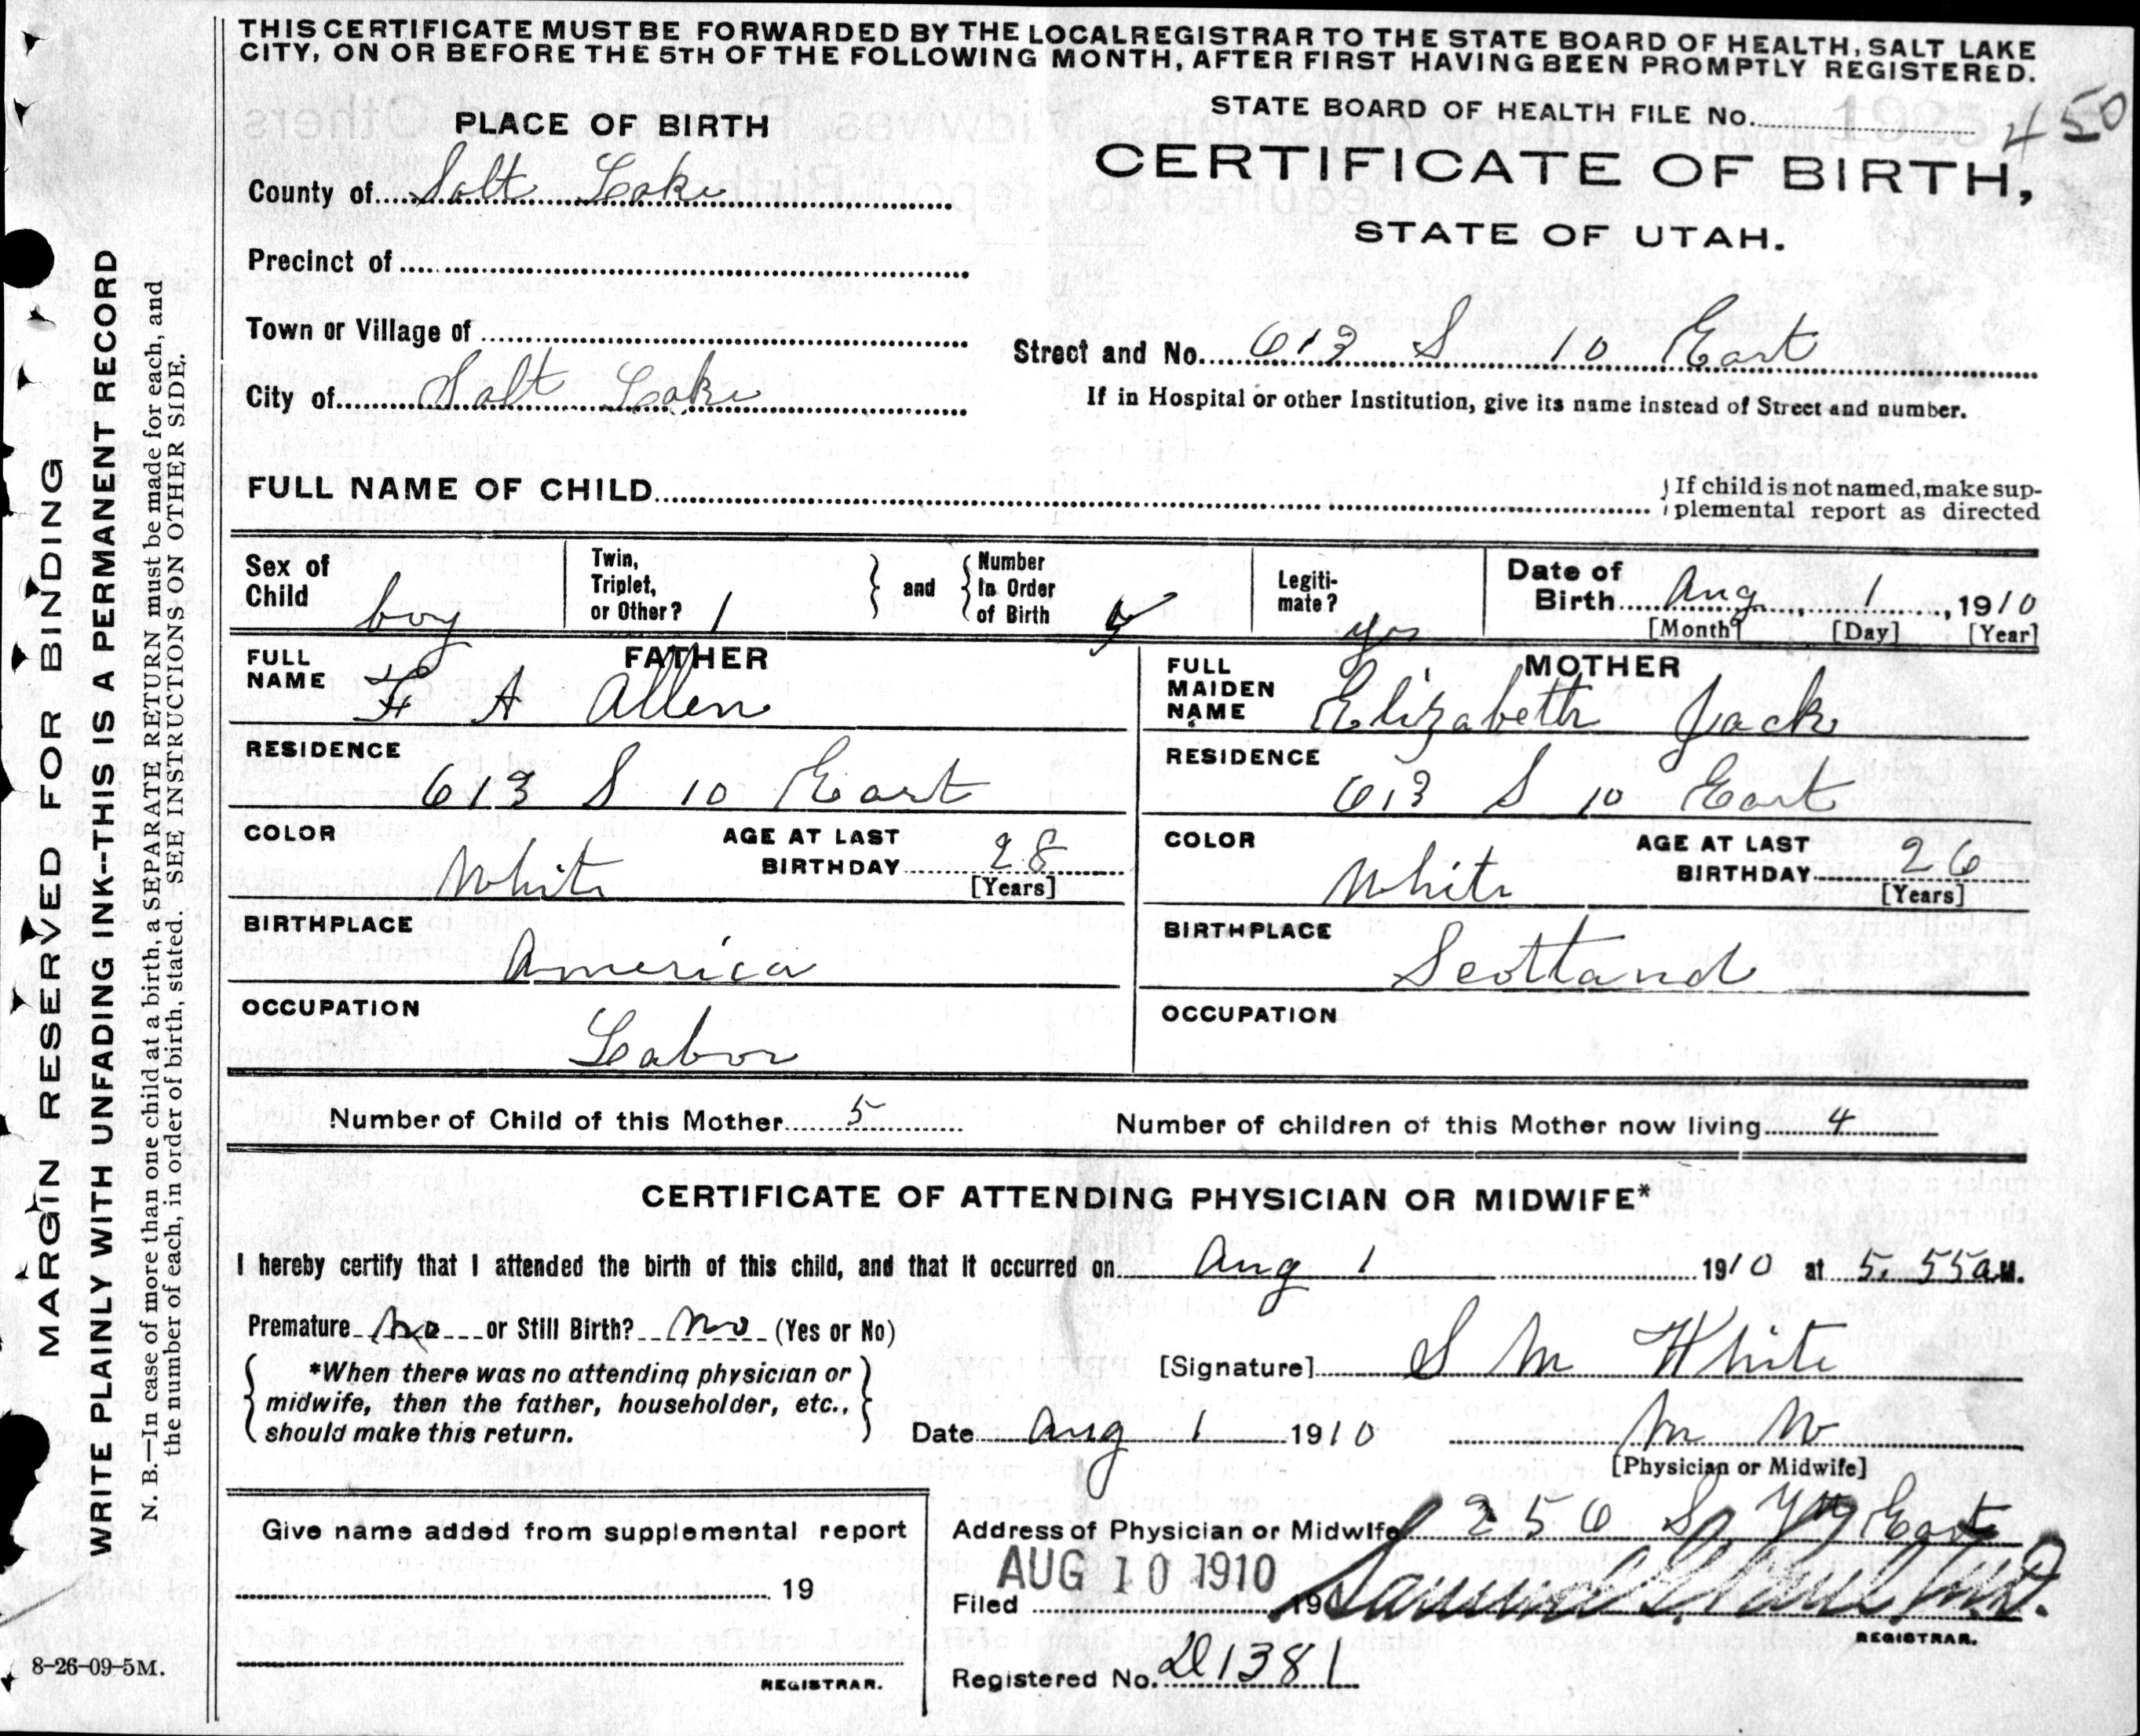 THIS CERTIFICATE MUST BE FORWARDED BY THE LOCAL REGISTRAR TO THE STATE BOARD OF HEALTH, SALT LAKE
CITY, ON OR BEFORE THE 5TH OF THE FOLLOWING MONTH, AFTER FIRST HAVING BEEN PROMPTLY REGISTERED.
STATE BOARD OF HEALTH FILE No. 450
PLACE OF BIRTH
CERTIFICATE OF BIRTH,
STATE OF UTAH.
County of Salt Lake
Precinct of
Town or Village of
Street and No. 613 S 10 East
City of Salt Lake
If in Hospital or other Institution, give its name instead of Street and number.
FULL NAME OF CHILD
If child is not named, make sup-
plemental report as directed
Sex of Child boy
Twin, Triplet, or Other? 1
and
Number In Order of Birth
Legiti-mate? yes
Date of Birth Aug, 1, 1910
[Month] [Day] [Year]
FATHER
FULL NAME F A Allen
RESIDENCE
613 S 10 East
COLOR White
AGE AT LAST BIRTHDAY 28
[Years]
BIRTHPLACE
America
OCCUPATION
Labor
MOTHER
FULL MAIDEN NAME Elizabeth Jack
RESIDENCE
613 S 10 East
COLOR White
AGE AT LAST BIRTHDAY 26
[Years]
BIRTHPLACE
Scotland
OCCUPATION
Number of Child of this Mother 5
Number of children of this Mother now living 4
CERTIFICATE OF ATTENDING PHYSICIAN OR MIDWIFE*
I hereby certify that I attended the birth of this child, and that it occurred on Aug 1 1910 at 5.55 a M.
Premature no or Still Birth? no (Yes or No)
*When there was no attending physician or
midwife, then the father, householder, etc.,
should make this return.
[Signature] S M White
Date Aug 1 1910
M W
[Physician or Midwife]
Give name added from supplemental report
19
REGISTRAR.
Address of Physician or Midwife 256 So 7th East
AUG 10 1910
Filed 190
REGISTRAR.
Registered No. D1381
MARGIN RESERVED FOR BINDING
WRITE PLAINLY WITH UNFADING INK--THIS IS A PERMANENT RECORD
N. B.—In case of more than one child at a birth, a SEPARATE RETURN must be made for each, and
the number of each, in order of birth, stated. SEE INSTRUCTIONS ON OTHER SIDE.
8-26-09-5M.